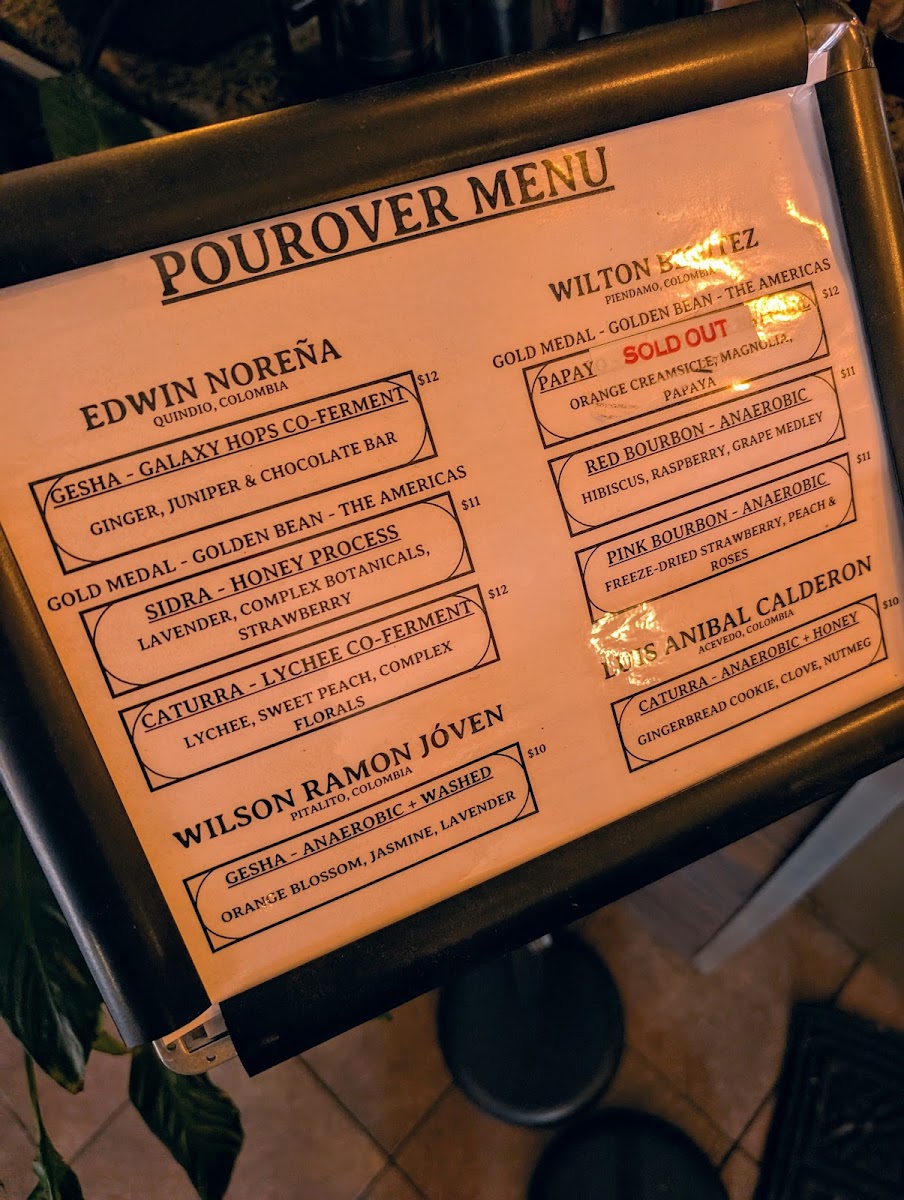 POUROVER MENU
EDWIN NOREÑA
QUINDIO, COLOMBIA
$12
GESHA - GALAXY HOPS CO-FERMENT
GINGER, JUNIPER & CHOCOLATE BAR
GOLD MEDAL - GOLDEN BEAN - THE AMERICAS
$11
SIDRA - HONEY PROCESS
LAVENDER, COMPLEX BOTANICALS,
STRAWBERRY
$12
CATURRA - LYCHEE CO-FERMENT
LYCHEE, SWEET PEACH, COMPLEX
FLORALS
WILSON RAMON JÓVEN
PITALITO, COLOMBIA
$10
GESHA - ANAEROBIC + WASHED
ORANGE BLOSSOM, JASMINE, LAVENDER
WILTON BENITEZ
PIENDAMO, COLOMBIA
GOLD MEDAL - GOLDEN BEAN - THE AMERICAS
$12
SOLD OUT
ORANGE CREAMSICLE, MAGNOLIA,
PAPAYA
$11
RED BOURBON - ANAEROBIC
HIBISCUS, RASPBERRY, GRAPE MEDLEY
$11
PINK BOURBON - ANAEROBIC
FREEZE-DRIED STRAWBERRY, PEACH &
ROSES
LUIS ANIBAL CALDERON
ACEVEDO, COLOMBIA
$10
CATURRA - ANAEROBIC + HONEY
GINGERBREAD COOKIE, CLOVE, NUTMEG